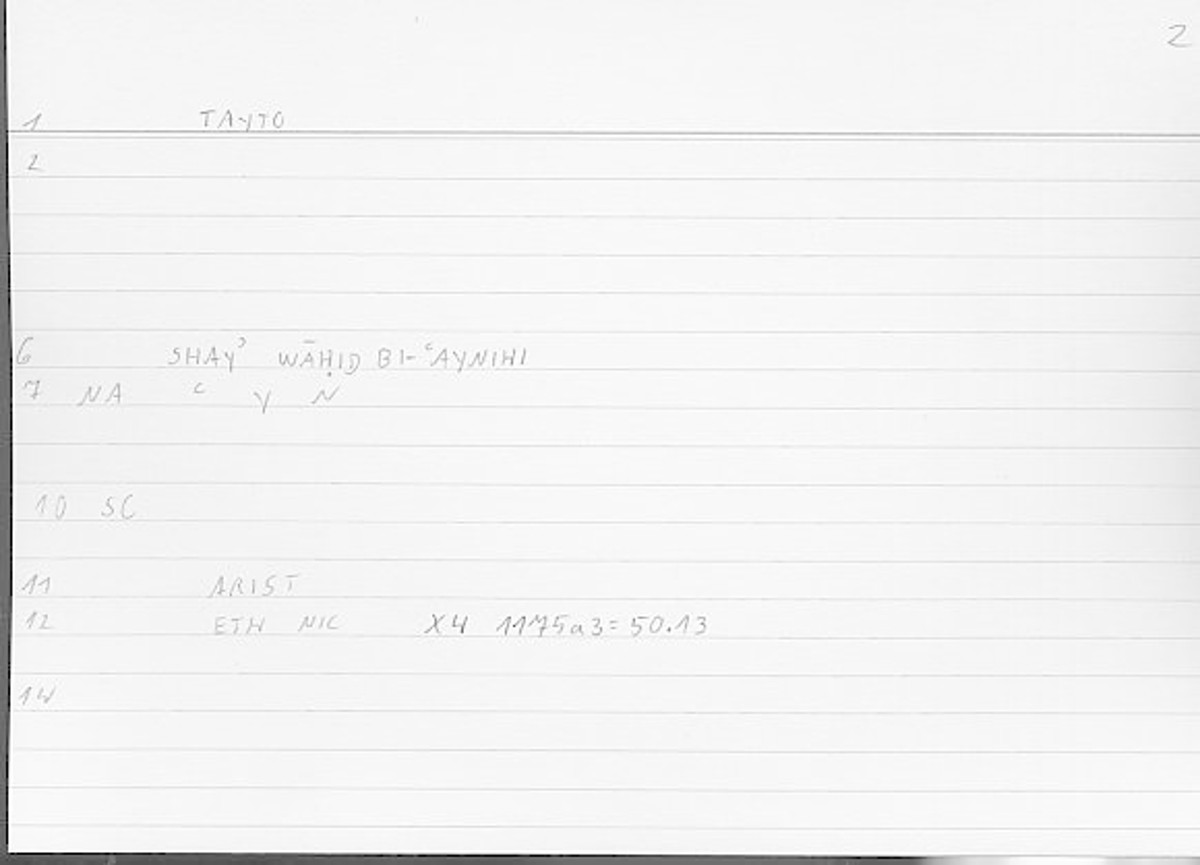 2
1 TAYTO
2
6 SHAYʾ WĀḤID BI-ʿAYNIHI
7 NA ʿ Y N
10 SC
11 ARIST
12 ETH NIC X4 1175a3=50.13
14